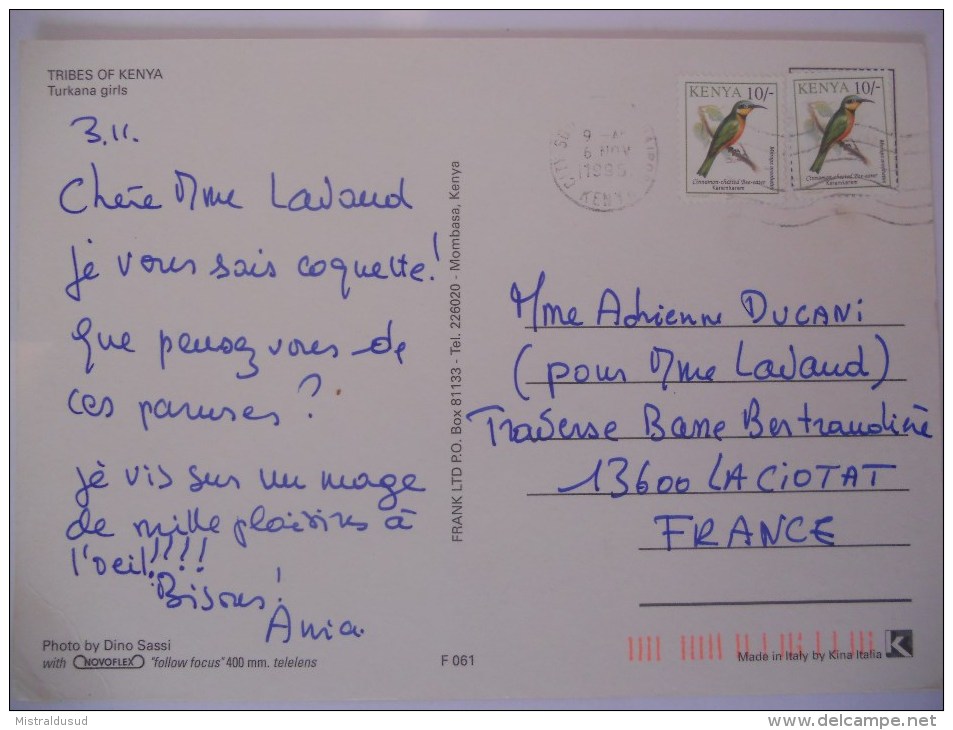 TRIBES OF KENYA
Turkana girls
3.11.
Chère Mme Lavaud
je vous sais coquette!
Que pensez vous de
ces parures?
je vis sur un nuage
de mille plaisirs à
l'oeil!!!!
Bisous!
Ania.
Photo by Dino Sassi
with NOVOFLEX "follow focus" 400 mm. telelens
F 061
FRANK LTD P.O. Box 81133 - Tel. 226020 - Mombasa, Kenya
9
6 NOV
1995
KENYA
KENYA 10/-
Cinnamon-chested Bee-eater
Keremkerem
KENYA 10/-
Cinnamon-chested Bee-eater
Keremkerem
Mme Adrienne DUCANI
(pour Mme Lavaud)
Traverse Basse Bertrandière
13600 LA CIOTAT
FRANCE
Made in Italy by Kina Italia
K
Mistraldusud
http://www.delcampe.net